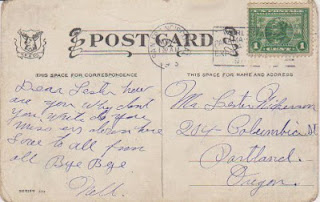 POST CARD
THIS SPACE FOR CORRESPONDENCE
THIS SPACE FOR NAME AND ADDRESS
1 CENT 1
Dear Lester how
are you why dont
you write do you
miss us down here
love to all from
all Bye Bye
Nell.
Mr Lester Wilkinson
284 - Columbia St
Portland.
Oregon.